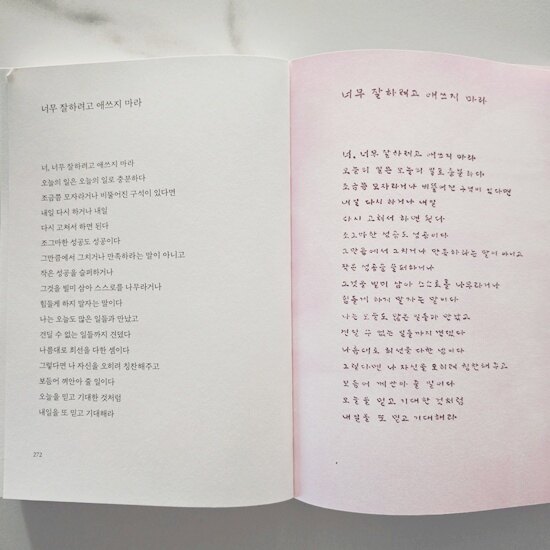 너무 잘하려고 애쓰지 마라
너, 너무 잘하려고 애쓰지 마라
오늘의 일은 오늘의 일로 충분하다
조금쯤 모자라거나 비뚤어진 구석이 있다면
내일 다시 하거나 내일
다시 고쳐서 하면 된다
조그마한 성공도 성공이다
그만큼에서 그치거나 만족하라는 말이 아니고
작은 성공을 슬퍼하거나
그것을 빌미 삼아 스스로를 나무라거나
힘들게 하지 말자는 말이다
나는 오늘도 많은 일들과 만났고
견딜 수 없는 일들까지 견뎠다
나름대로 최선을 다한 셈이다
그렇다면 나 자신을 오히려 칭찬해주고
보듬어 껴안아 줄 일이다
오늘을 믿고 기대한 것처럼
내일을 또 믿고 기대해라
272
너무 잘하려고 애쓰지 마라
너, 너무 잘하려고 애쓰지 마라
오늘의 일은 오늘의 일로 충분하다
조금쯤 모자라거나 비뚤어진 구석이 있다면
내일 다시 하거나 내일
다시 고쳐서 하면 된다
조그마한 성공도 성공이다
그만큼에서 그치거나 만족하라는 말이 아니고
작은 성공을 슬퍼하거나
그것을 빌미 삼아 스스로를 나무라거나
힘들게 하지 말자는 말이다
나는 오늘도 많은 일들과 만났고
견딜 수 없는 일들까지 견뎠다
나름대로 최선을 다한 셈이다
그렇다면 나 자신을 오히려 칭찬해주고
보듬어 껴안아 줄 일이다
오늘을 믿고 기대한 것처럼
내일을 또 믿고 기대해라